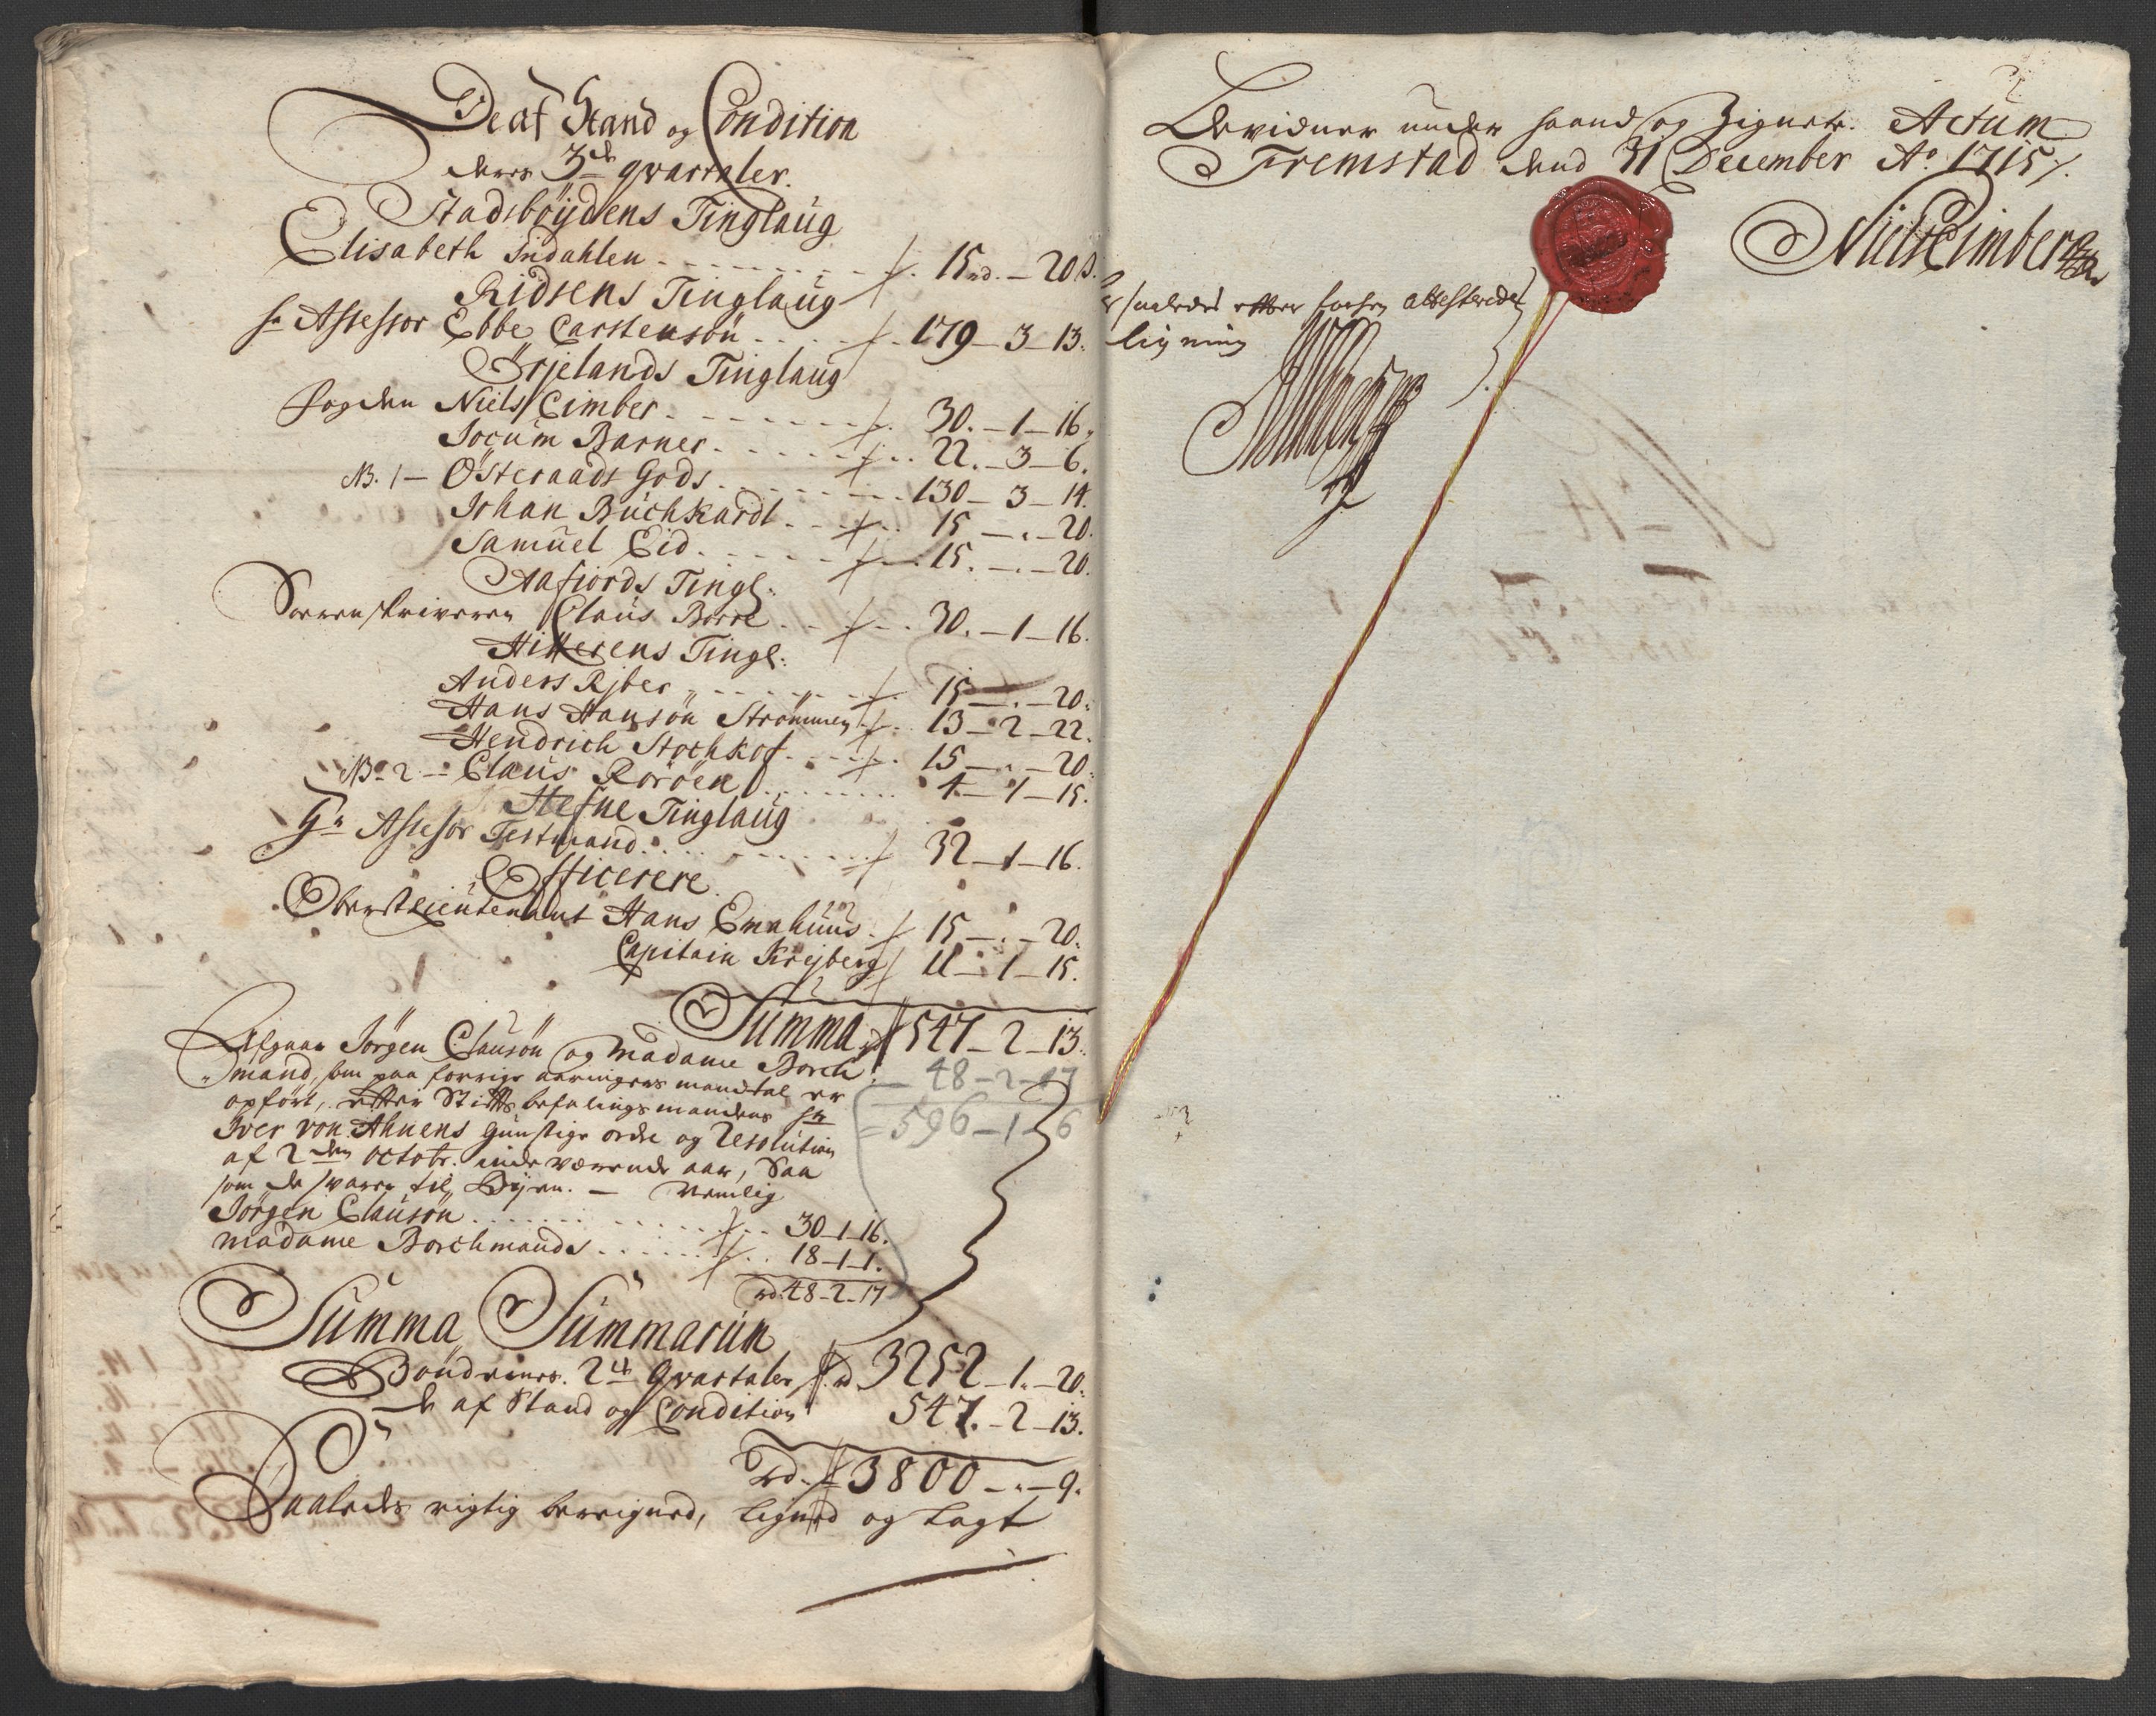 De af Stand og Condition
deres 3de qvartaler.
Stadsböydens Tinglaug
Elisabeth Indahlen - - - - - - - 15 rd. - 20 s.
Ridsens Tinglaug
Hr Assessor Ebbe Carstensön . . . . 179 - 3 - 13.
Örjelands Tinglaug
fogden Niels Cimber - - - - - - 30. - 1 - 16.
Jocum Barner - - - - - - 22. - 3 - 6.
NB. 1 - Österaads Gods - - - - - - 130 - 3 - 14.
Johan Büchkardt - - - - 15 - . - 20.
Samuel Eid - - - - - - 15. - . - 20.
Aafiords Tingl:
Sorrenskriveren Claus Borre - - - - 30. - 1 - 16.
Hitterens Tingl:
Anders Rjber - - - - - - 15 - . - 20.
Hans Hansön Strömmen - - 13 - 2 - 22.
Hendrich Stochkof - - - - 15 - . - 20.
NB. 2 - Claus Roröen - - - - - 4 - 1 - 15.
Stefne Tinglaug
Hr Assessor Testmand . . . . . . . 32 - 1 - 16.
Officerere
Oberstleiutenant Hans Emahuus - 15 - . - 20.
Capitain Krejberg 11 - 1 - 15.
Summa rd 547 - 2 - 13.
Afgaar Jörgen Clausön og Madame Borch-
mand, som paa forrige aaringers mandtal er
opfört, etter Stiftsbefalingsmandens Hr
Iver von Ahnens gunstige ordre og Resolution
af 2den octobr. inderværende aar, Saa
som de svarer til Byen. - Nemlig
- 48 - 2 - 17
= 596 - 1 - 6
Jörgen Clausön . . . . . . . . 30 - 1 - 16.
Madame Borchmands . . . . . . 18 - 1 - 1.
rd. 48 - 2 - 17
Summa Summarum
Böndernes 2de Qvartaler rd. 3252 - 1. - 20.
De af Stand og Condition 547. - 2 - 13.
Rd. 3800 - . - 9.
Saaledes rigtig beregned, lignet og lagt
Bevidner under haand og Zignete. Actum
Fremstad dend 31 December Ao 1715 /.
Niels Cimber
saaledes etter forhen attesterede
ligning